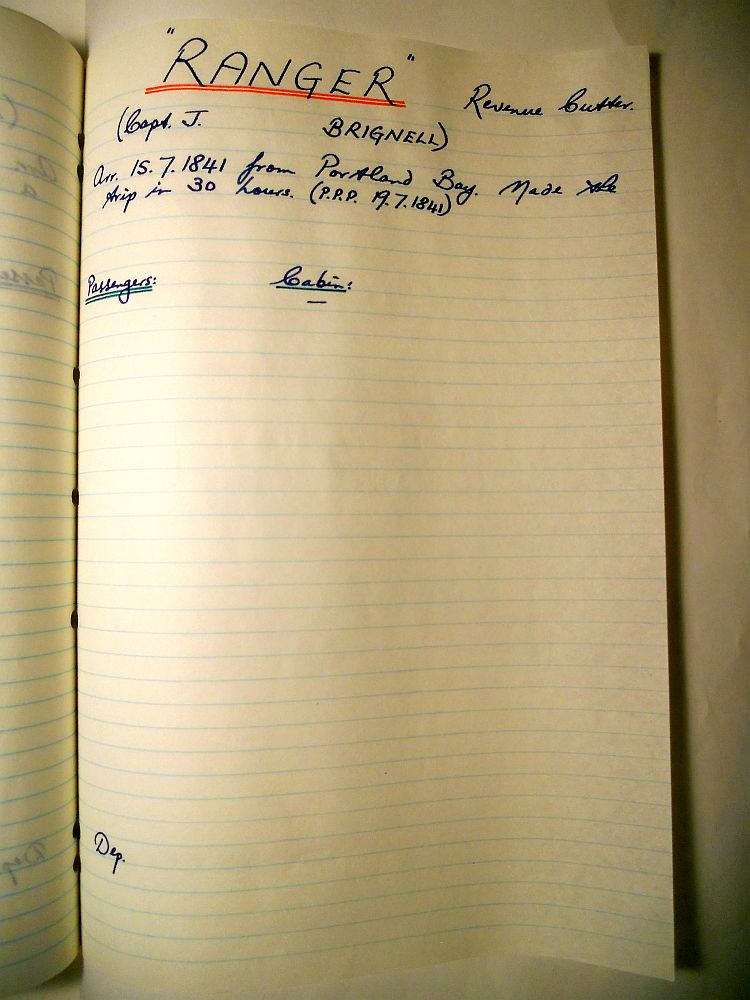 "RANGER" Revenue Cutter.
(Capt. J. BRIGNELL)
Arr. 15.7.1841 from Portland Bay. Made the
trip in 30 hours. (P.P.P. 19.7.1841)
Passengers: Cabin:
—
Dep.